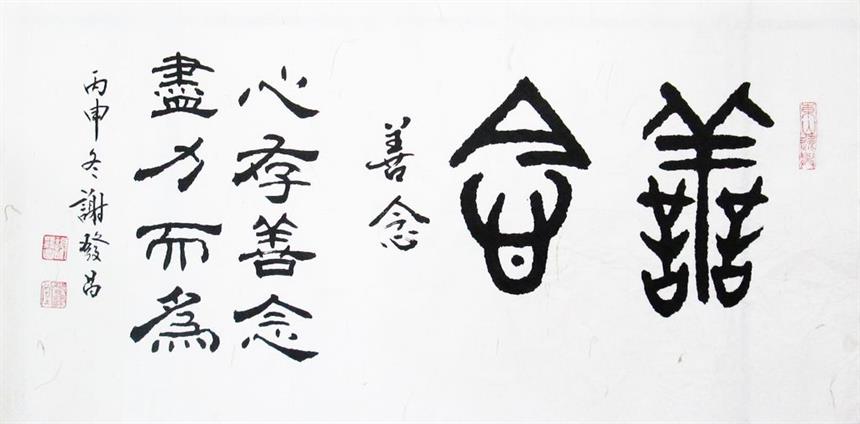 善念
善念
心存善念
盡力而為
丙申冬謝發昌